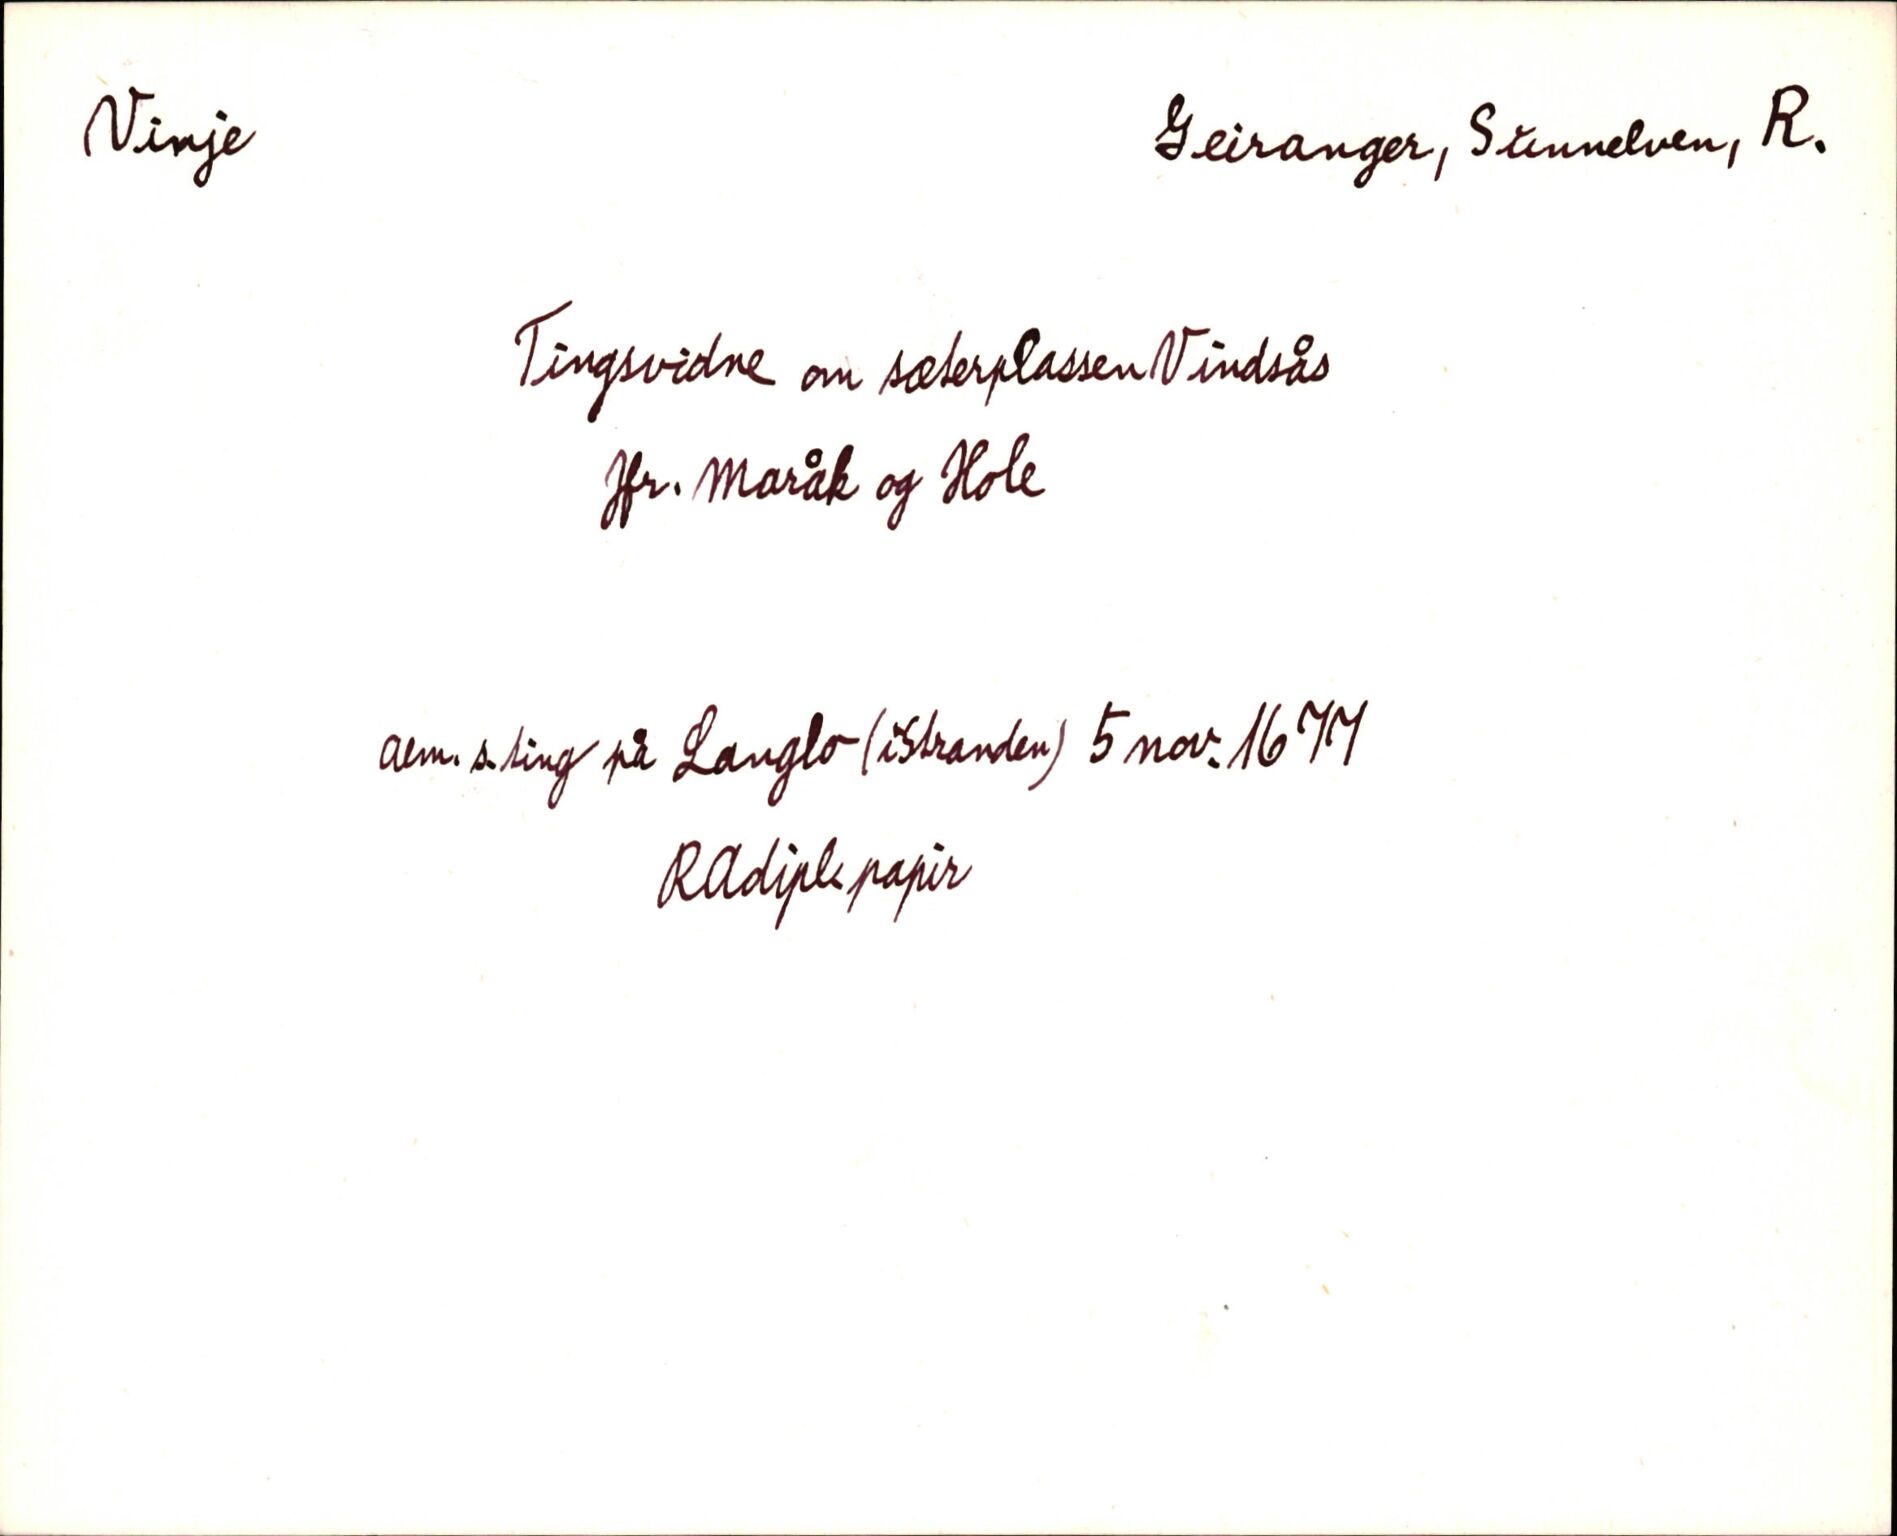 Vinje
Geiranger, Sunnelven, R.
Tingsvidne om sæterplassen Vindsås
Jfr. Maråk og Hole
Alm. s. ting på Langlo (i Stranden) 5 nov. 1677
RA dipl. papir